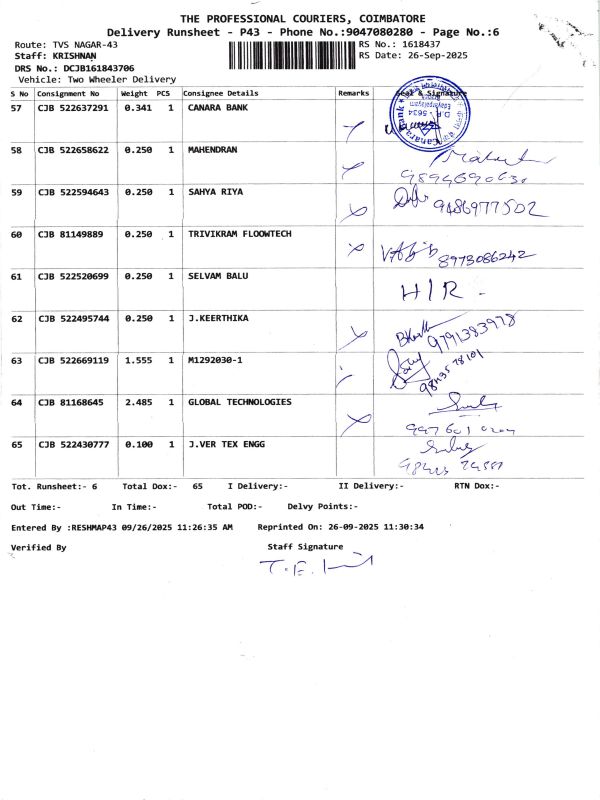 THE PROFESSIONAL COURIERS, COIMBATORE
Delivery Runsheet - P43 - Phone No.:9047080280 - Page No.:6
Route: TVS NAGAR-43
RS No.: 1618437
Staff: KRISHNAN
RS Date: 26-Sep-2025
DRS No.: DCJB161843706
Vehicle: Two Wheeler Delivery
S No Consignment No Weight PCS Consignee Details Remarks Seal & Signature
57 CJB 522637291 0.341 1 CANARA BANK
58 CJB 522658622 0.250 1 MAHENDRAN
59 CJB 522594643 0.250 1 SAHYA RIYA 9486977502
60 CJB 81149889 0.250 1 TRIVIKRAM FLOOWTECH 8973086242
61 CJB 522520699 0.250 1 SELVAM BALU H/R -
62 CJB 522495744 0.250 1 J.KEERTHIKA 9791383978
63 CJB 522669119 1.555 1 M1292030-1
64 CJB 81168645 2.485 1 GLOBAL TECHNOLOGIES
65 CJB 522430777 0.100 1 J.VER TEX ENGG
Tot. Runsheet:- 6 Total Dox:- 65 I Delivery:- II Delivery:- RTN Dox:-
Out Time:- In Time:- Total POD:- Delvy Points:-
Entered By :RESHMAP43 09/26/2025 11:26:35 AM Reprinted On: 26-09-2025 11:30:34
Verified By Staff Signature